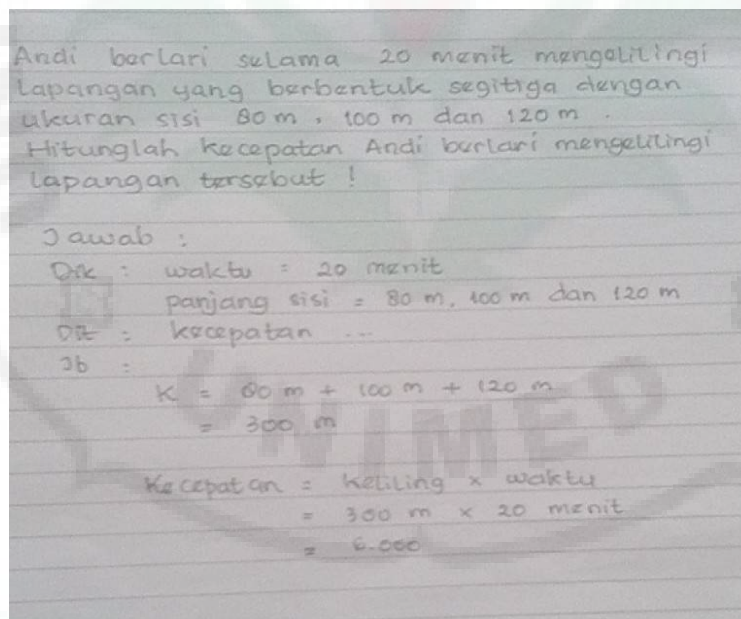 Andi berlari selama 20 menit mengelilingi
lapangan yang berbentuk segitiga dengan
ukuran sisi 80 m, 100 m dan 120 m.
Hitunglah kecepatan Andi berlari mengelilingi
lapangan tersebut !
Jawab :
Dik : waktu = 20 menit
panjang sisi = 80 m, 100 m dan 120 m
Dit : kecepatan ...
Jb :
K = 80 m + 100 m + 120 m
= 300 m
Kecepatan = keliling x waktu
= 300 m x 20 menit
= 6.000
UNIMED